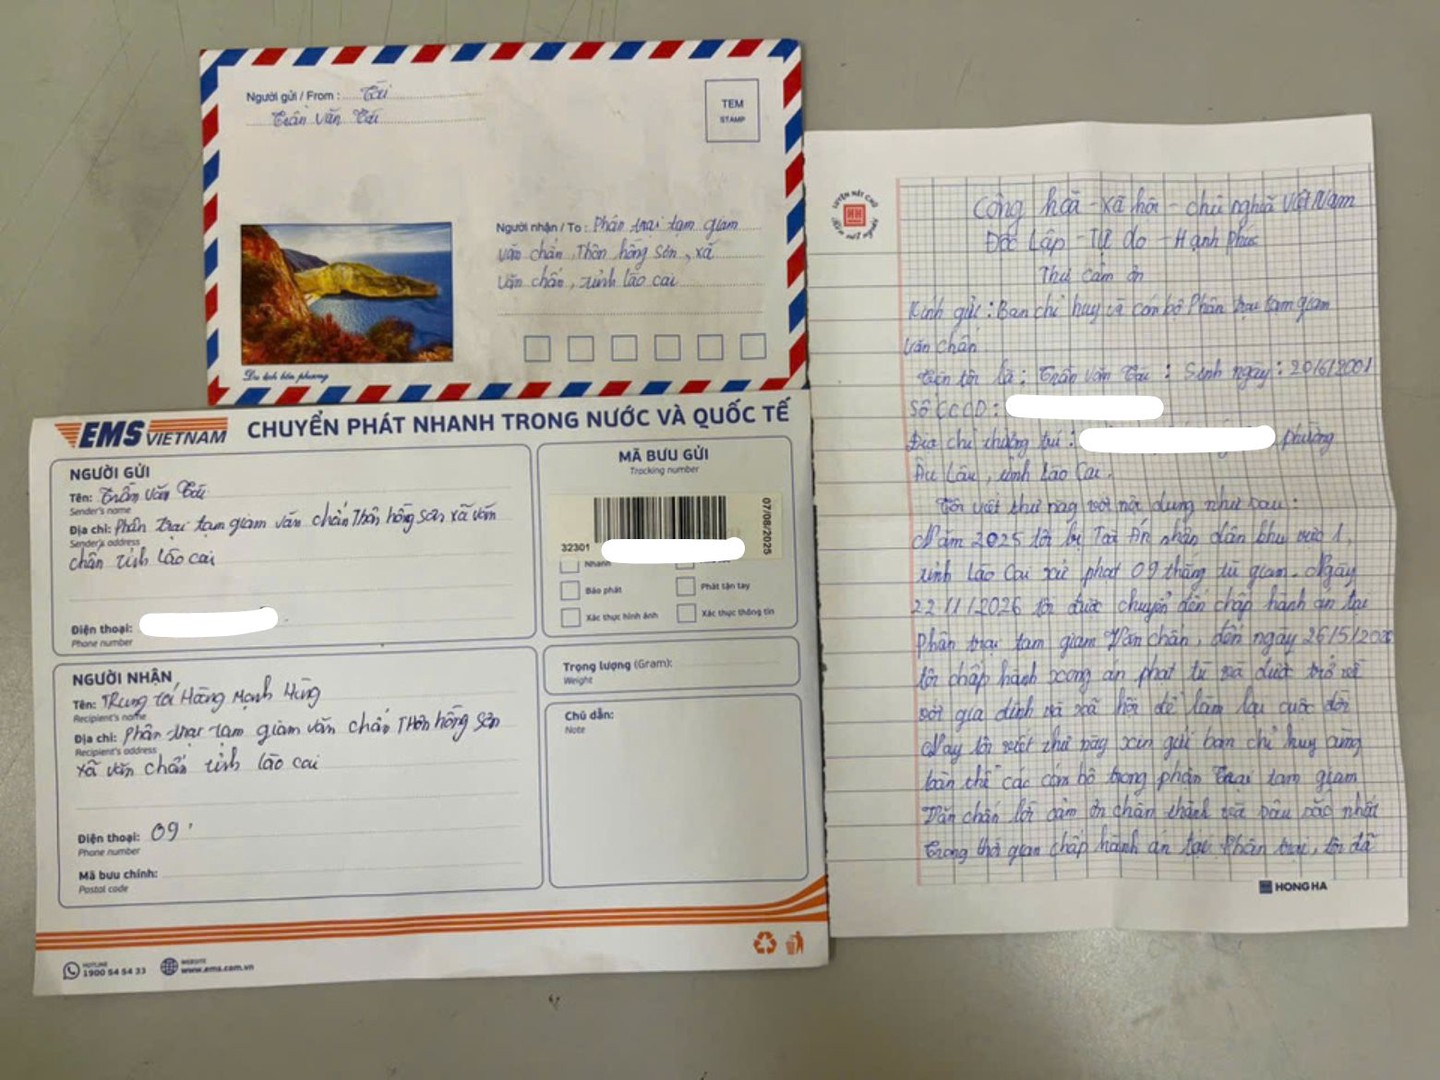 Người gửi / From : Tái
Trần Văn Tái
TEM
STAMP
Người nhận / To : Phân trại tạm giam
văn chấn, Thôn hồng Sơn, xã
văn chấn, tỉnh lào cai
Du lịch bốn phương
EMS VIETNAM
CHUYỂN PHÁT NHANH TRONG NƯỚC VÀ QUỐC TẾ
NGƯỜI GỬI
Tên: Trần Văn Tái
Sender's name
Địa chỉ: phân trại tạm giam văn chấn Thôn hồng sơn xã văn
Sender's address
chấn tỉnh lào cai
Điện thoại:
Phone number
NGƯỜI NHẬN
Tên: Trung tá Hoàng Mạnh Hùng
Recipient's name
Địa chỉ: phân trại tạm giam văn chấn Thôn hồng sơn
Recipient's address
xã văn chấn tỉnh lào cai
Điện thoại: 09
Phone number
Mã bưu chính:
Postal code
MÃ BƯU GỬI
Tracking number
32301
07/08/2025
Nhanh
Báo phát
Phát tận tay
Xác thực hình ảnh
Xác thực thông tin
Trọng lượng (Gram):
Weight
Chú dẫn:
Note
HOTLINE
1900 54 54 33
WEBSITE
www.ems.com.vn
LUYỆN NÉT CHỮ
HH
Rèn nết người
Cộng hoà - xã hội - chủ nghĩa Việt Nam
Độc Lập - Tự do - Hạnh phúc
Thư cảm ơn
Kính gửi : Ban chỉ huy và cán bộ Phân trại tạm giam
văn chấn
Tên tôi là : Trần Văn Tái : Sinh ngày : 20/6/2001
Số CCCD :
Địa chỉ thường trú : phường
Âu Lâu, tỉnh Lào Cai.
Tôi viết thư này với nội dung như sau :
Năm 2025 tôi bị Toà Án nhân dân khu vực 1,
tỉnh Lào Cai xử phạt 09 tháng tù giam. Ngày
22/1/2026 tôi được chuyển đến chấp hành án tại
Phân trại tạm giam Văn chấn, đến ngày 26/5/
tôi chấp hành xong án phạt tù và được trở về
với gia đình và xã hội để làm lại cuộc đời
Nay tôi viết thư này xin gửi ban chỉ huy cùng
toàn thể các cán bộ trong phân trại tạm giam
Văn chấn lời cảm ơn chân thành và sâu sắc nhất
Trong thời gian chấp hành án tại Phân trại, tôi đã
HONG HA